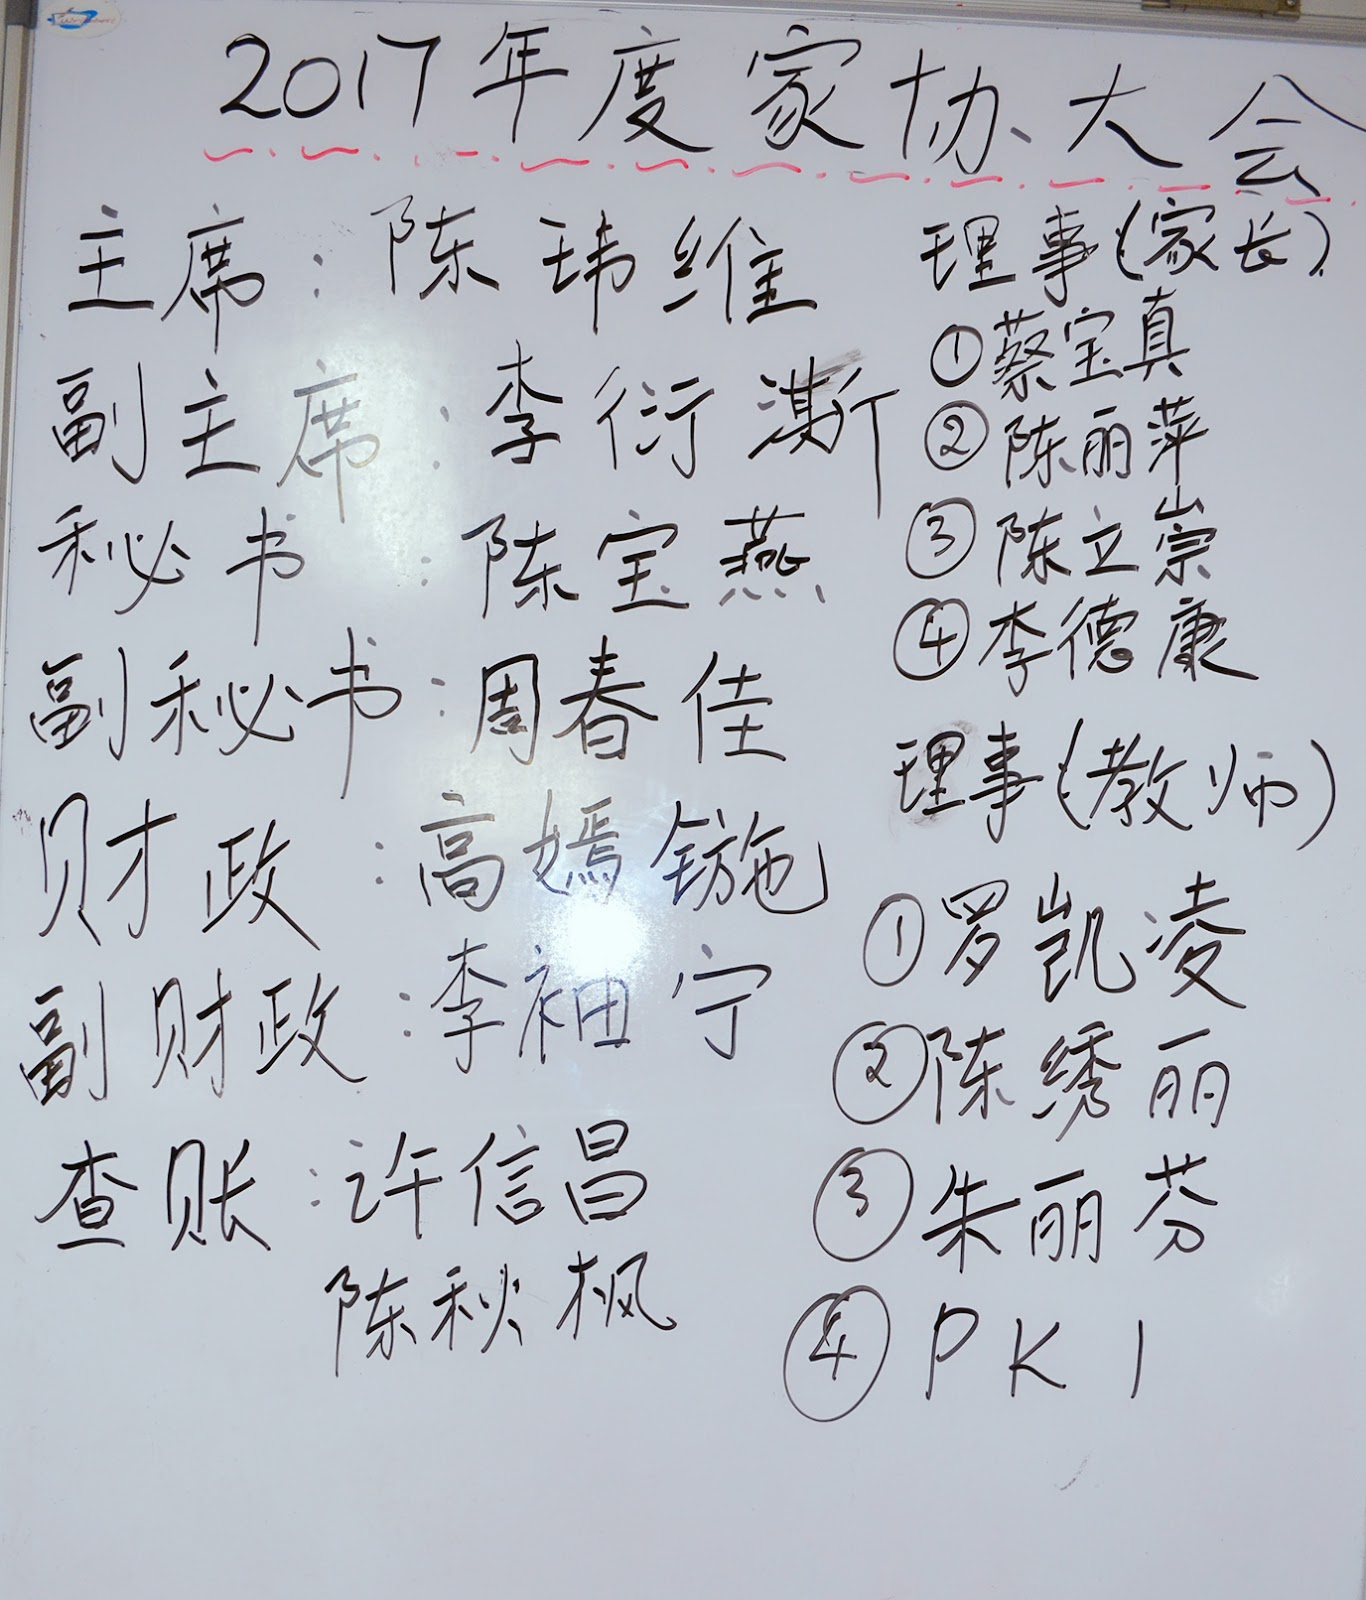 2017年度家协大会
主席：陈玮维
副主席：李衍澌
秘书：陈宝燕
副秘书：周春佳
财政：高嫣䥱
副财政：李䄂宁
查账：许信昌
陈秋枫
理事（家长）
①蔡宝真
②陈丽萍
③陈立崇
④李德康
理事（教师）
①罗凯凌
②陈绣丽
③朱丽芬
④PK1